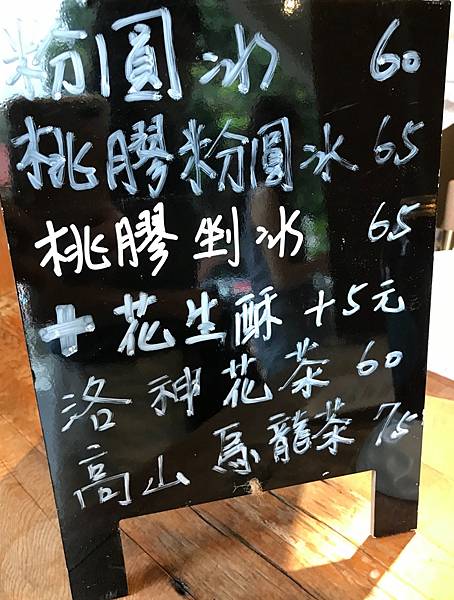 粉圓冰 60
桃膠粉圓冰 65
桃膠剉冰 65
+花生酥 +5元
洛神花茶 60
高山烏龍茶 75